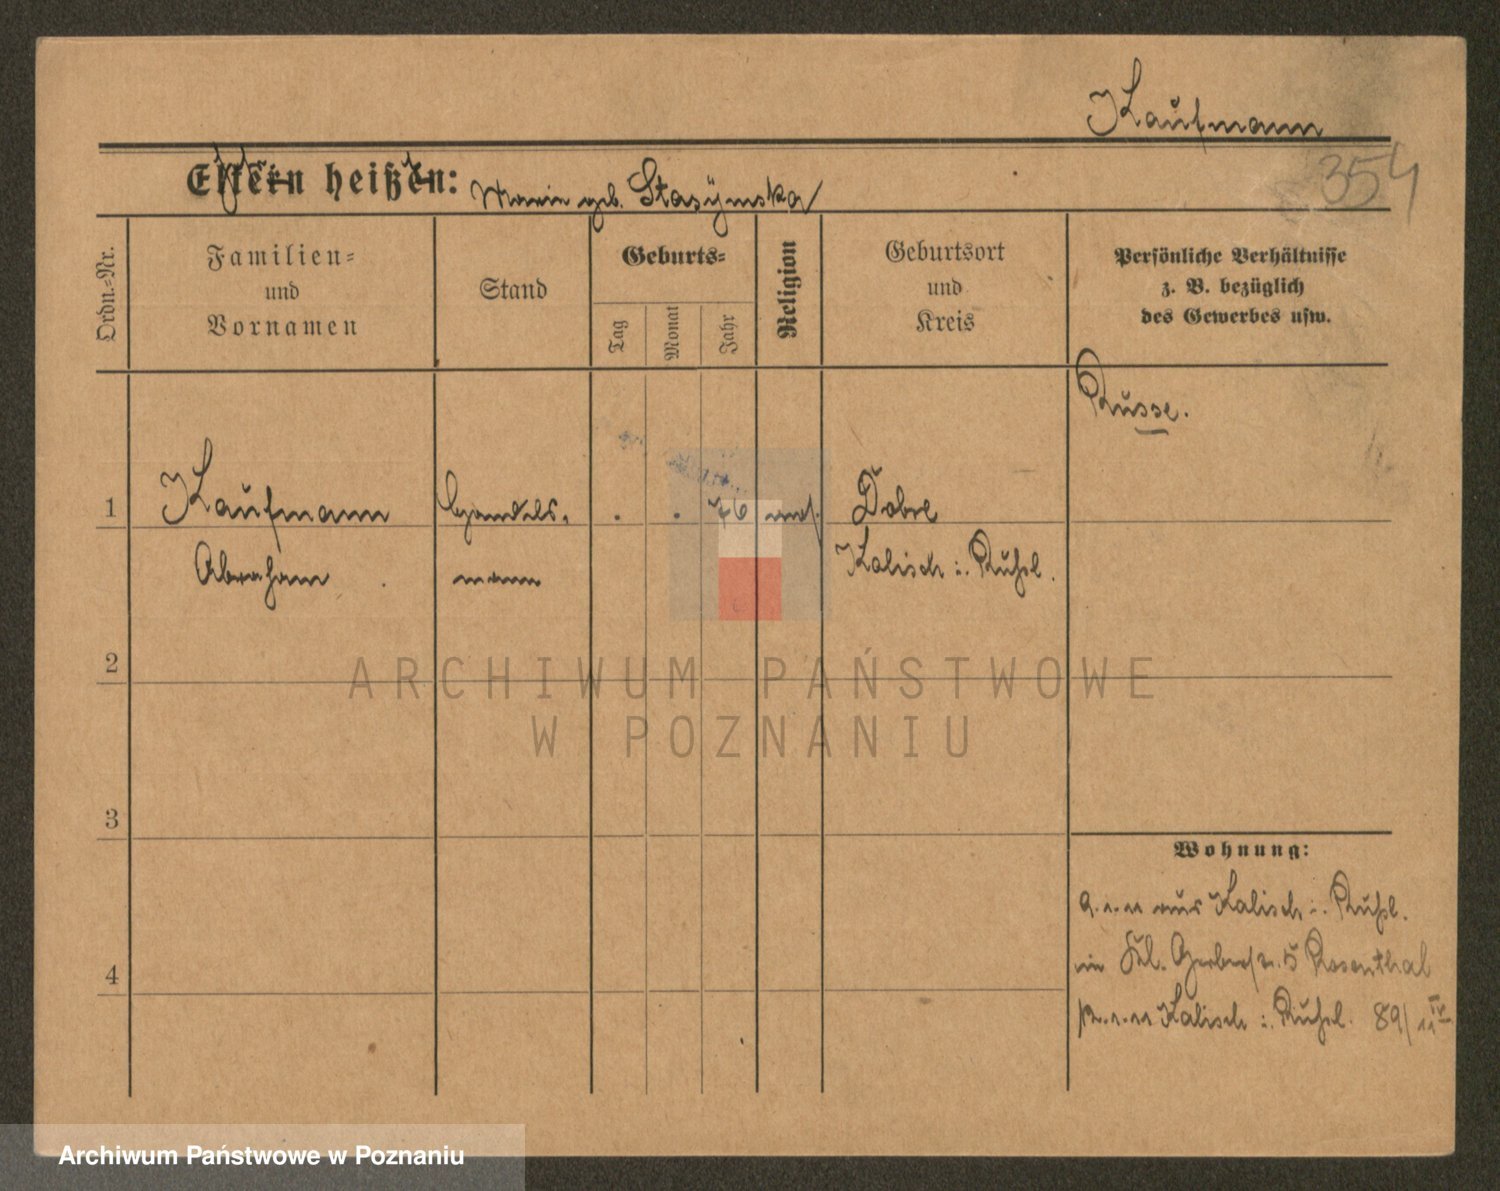 Kaufmann
354
Eltern heißen: Marie geb. Stasÿmska
Ordn.-Nr.
Familien-
und
Vornamen
Stand
Geburts-
Tag
Monat
Jahr
Religion
Geburtsort
und
Kreis
Persönliche Verhältnisse
z. B. bezüglich
des Gewerbes usw.
Russe.
1 Kaufmann Handels- . . 76 mos. Dobre
Abraham mann Kalisch i. Rußl.
2
ARCHIWUM PAŃSTWOWE
W POZNANIU
3
4
Wohnung:
9.1.11 aus Kalisch i. Rußl.
in Kl. Gerberstr. 5 Rosenthal
1.11 Kalisch i. Rußl. 89/11 IV
Archiwum Państwowe w Poznaniu